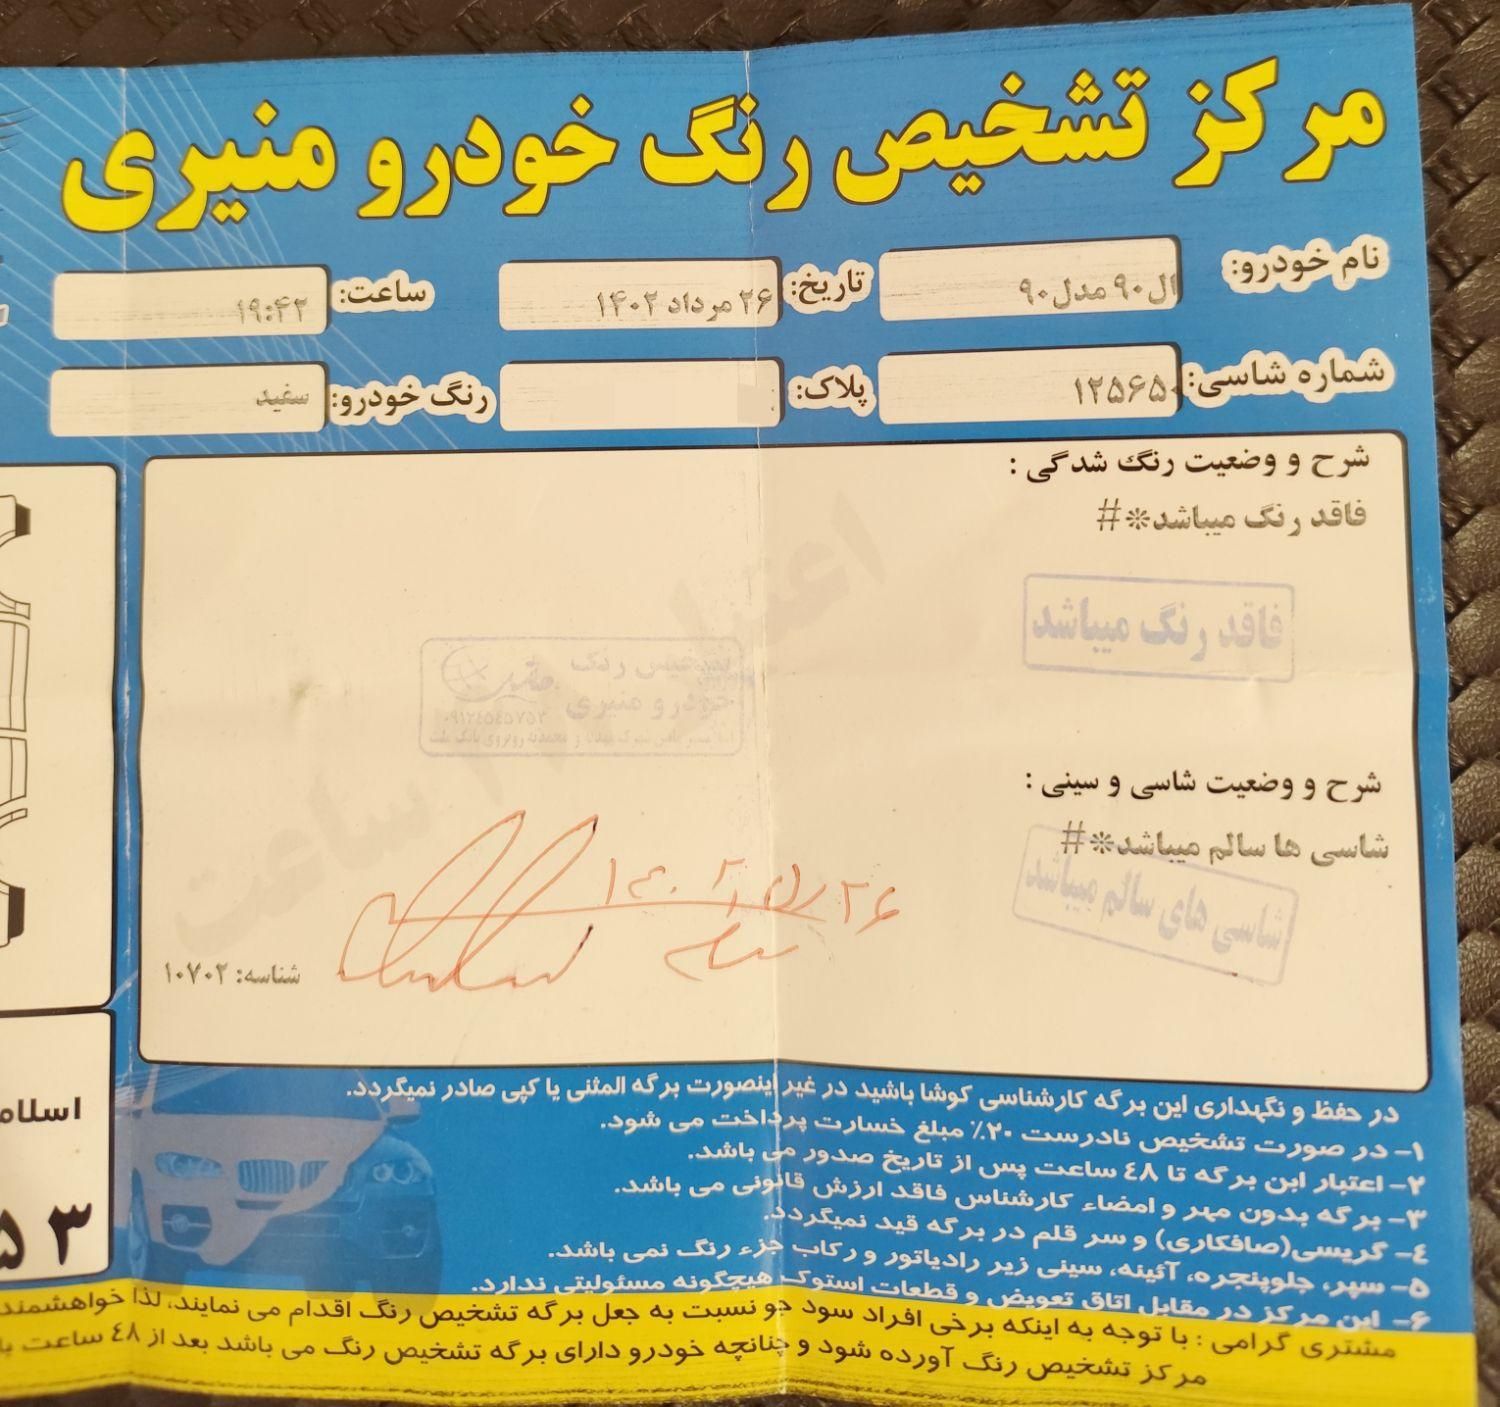 مرکز تشخیص رنگ خودرو منیری
نام خودرو: ال۹۰ مدل۹۰ تاریخ: ۲۶ مرداد ۱۴۰۲ ساعت: ۱۹:۴۲
شماره شاسی: ۱۲۵۶۵۰ پلاک: رنگ خودرو: سفید
شرح و وضعیت رنگ شدگی :
فاقد رنگ میباشد*#
فاقد رنگ میباشد
تشخیص رنگ
خودرو منیری
اعتبار ساعت
شرح و وضعیت شاسی و سینی :
شاسی ها سالم میباشد*#
شاسی های سالم میباشد
۱۴۰۲/۵/۲۶
شناسه: ۱۰۷۰۲
در حفظ و نگهداری این برگه کارشناسی کوشا باشید در غیر اینصورت برگه المثنی یا کپی صادر نمیگردد.
۱- در صورت تشخیص نادرست ۲۰٪ مبلغ خسارت پرداخت می شود.
۲- اعتبار این برگه تا ٤٨ ساعت پس از تاریخ صدور می باشد.
۳- برگه بدون مهر و امضاء کارشناس فاقد ارزش قانونی می باشد.
٤- گریسی(صافکاری) و سر قلم در برگه قید نمیگردد.
۵- سپر، جلوپنجره، آئینه، سینی زیر رادیاتور و رکاب جزء رنگ نمی باشد.
۶- این مرکز در مقابل اتاق تعویض و قطعات استوک هیچگونه مسئولیتی ندارد.
مشتری گرامی : با توجه به اینکه برخی افراد سود جو نسبت به جعل برگه تشخیص رنگ اقدام می نمایند، لذا خواهشمند
مرکز تشخیص رنگ آورده شود و چنانچه خودرو دارای برگه تشخیص رنگ می باشد بعد از ٤٨ ساعت
اسلام
۵۳